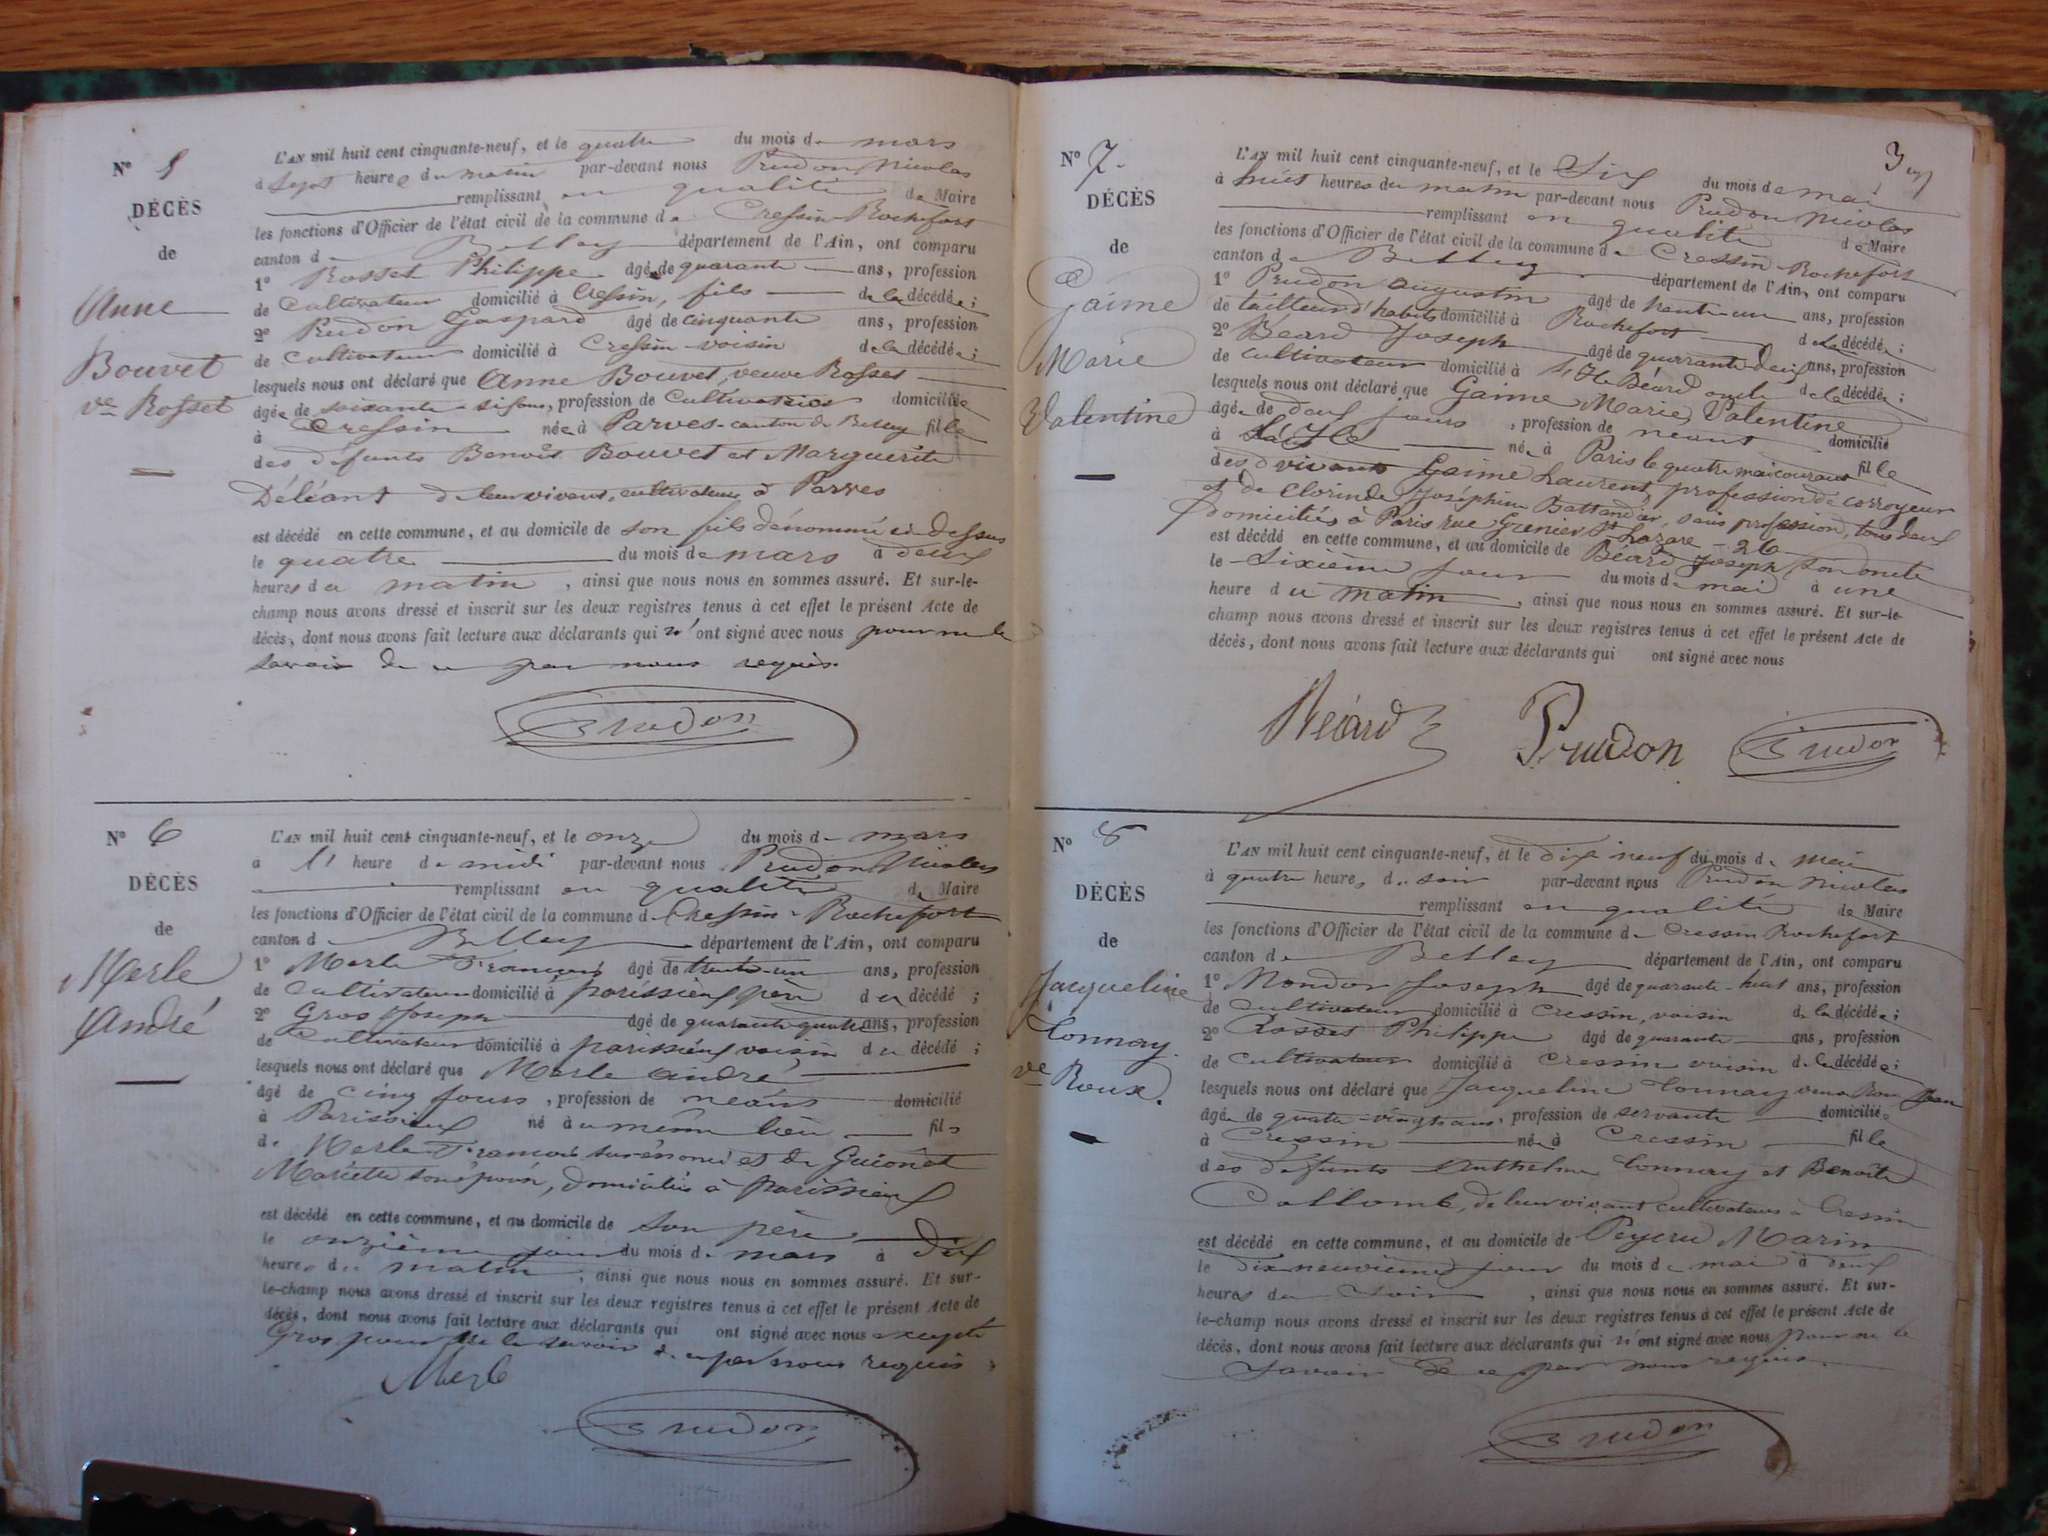 N° 5
DÉCÈS
de
Anne
Bouvet
ve Rosset
L'AN mil huit cent cinquante-neuf, et le quatre du mois de mars
à sept heures du matin par-devant nous Prudon Nicolas
remplissant en qualité de Maire
les fonctions d'Officier de l'état civil de la commune de Cressin-Rochefort
canton de Belley département de l'Ain, ont comparu
1° Rosset Philippe âgé de quarante ans, profession
de cultivateur domicilié à Cressin, fils de la décédée ;
2° Prudon Gaspard âgé de cinquante ans, profession
de cultivateur domicilié à Cressin voisin de la décédée ;
lesquels nous ont déclaré que Anne Bouvet, veuve Rosset
âgée de soixante-six ans, profession de cultivatrice domiciliée
à Cressin née à Parves canton de Belley fille
des défunts Benoît Bouvet et Marguerite
Déléant de leur vivant, cultivateurs à Parves
est décédé en cette commune, et au domicile de son fils dénommé ci-dessus
le quatre du mois de mars à deux
heures du matin, ainsi que nous nous en sommes assuré. Et sur-le-
champ nous avons dressé et inscrit sur les deux registres tenus à cet effet le présent Acte de
décès, dont nous avons fait lecture aux déclarants qui n'ont signé avec nous pour ne le
savoir de ce par nous requis.
Prudon
N° 6
DÉCÈS
de
Merle
André
L'AN mil huit cent cinquante-neuf, et le onze du mois de mars
à 1' heure de midi par-devant nous Prudon Nicolas
remplissant en qualité de Maire
les fonctions d'Officier de l'état civil de la commune de Cressin-Rochefort
canton de Belley département de l'Ain, ont comparu
1° Merle François âgé de trente-un ans, profession
de cultivateur domicilié à parissieux père du décédé ;
2° Gros Joseph âgé de quarante-quatre ans, profession
de cultivateur domicilié à parissieux voisin du décédé ;
lesquels nous ont déclaré que Merle André
âgé de cinq jours, profession de néant domicilié
à Parissieux né au même lieu fils
de Merle François et de Guionet
Mariette domiciliés à Parissieux
est décédé en cette commune, et au domicile de son père
le onzième jour du mois de mars à dix
heures du matin, ainsi que nous nous en sommes assuré. Et sur-
le-champ nous avons dressé et inscrit sur les deux registres tenus à cet effet le présent Acte de
décès, dont nous avons fait lecture aux déclarants qui ont signé avec nous excepté
Gros pour ne le savoir de ce par nous requis
Merle
Prudon
3
N° 7.
DÉCÈS
de
Gaime
Marie
Valentine
L'AN mil huit cent cinquante-neuf, et le Six du mois de mai
à huit heures du matin par-devant nous Prudon Nicolas
remplissant en qualité de Maire
les fonctions d'Officier de l'état civil de la commune de Cressin-Rochefort
canton de Belley département de l'Ain, ont comparu
1° Prudon Augustin âgé de trente-un ans, profession
de tailleur d'habits domicilié à Rochefort de la décédée ;
2° Béard Joseph âgé de quarante-deux ans, profession
de cultivateur domicilié à l'Ile Béard oncle de la décédée ;
lesquels nous ont déclaré que Gaime Marie Valentine
âgée de deux jours, profession de néant domicilié
à née à Paris le quatre mai courant fille
des vivants Gaime Laurent, profession de corroyeur
et de Clorinde Joséphine Battandier, sans profession, tous deux
domiciliés à Paris rue Grenier St Lazare - 26
est décédé en cette commune, et au domicile de Béard Joseph son oncle
le sixième jour du mois de mai à une
heure du matin, ainsi que nous nous en sommes assuré. Et sur-le-
champ nous avons dressé et inscrit sur les deux registres tenus à cet effet le présent Acte de
décès, dont nous avons fait lecture aux déclarants qui ont signé avec nous
Béard Prudon Prudon
N° 8
DÉCÈS
de
Jacqueline
Connay
ve Roux.
L'AN mil huit cent cinquante-neuf, et le dix neuf du mois de mai
à quatre heures du soir par-devant nous Prudon Nicolas
remplissant en qualité de Maire
les fonctions d'Officier de l'état civil de la commune de Cressin Rochefort
canton de Belley département de l'Ain, ont comparu
1° Mondon Joseph âgé de quarante-huit ans, profession
de cultivateur domicilié à Cressin, voisin de la décédée ;
2° Rosset Philippe âgé de quarante ans, profession
de cultivateur domicilié à Cressin voisin de la décédée ;
lesquels nous ont déclaré que Jacqueline Connay veuve Roux Jean
âgée de quatre-vingts ans, profession de servante domiciliée
à Cressin née à Cressin fille
des défunts Anthelme Connay et Benoîte
Collomb, de leur vivant cultivateurs à Cressin
est décédé en cette commune, et au domicile de Peyrud Marin
le dix-neuvième jour du mois de mai à deux
heures du soir, ainsi que nous nous en sommes assuré. Et sur-
le-champ nous avons dressé et inscrit sur les deux registres tenus à cet effet le présent Acte de
décès, dont nous avons fait lecture aux déclarants qui n'ont signé avec nous pour ne le
savoir de ce par nous requis.
Prudon